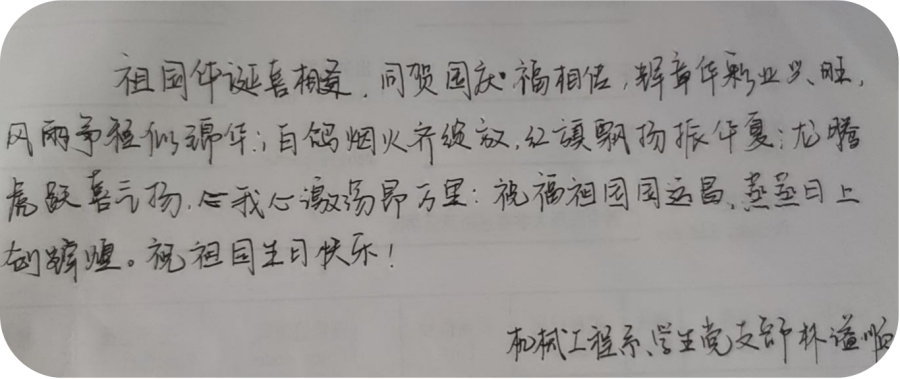 祖国华诞喜相逢,同贺国庆福相伴,辉章华彩业兴旺,
风雨争程似锦华;白鸽烟火齐绽放,红旗飘扬振华夏;龙腾
虎跃喜气扬,我心激荡昂万里:祝福祖国国运昌,蒸蒸日上
创辉煌。祝祖国生日快乐!
机械工程系学生党支部 林谥顺